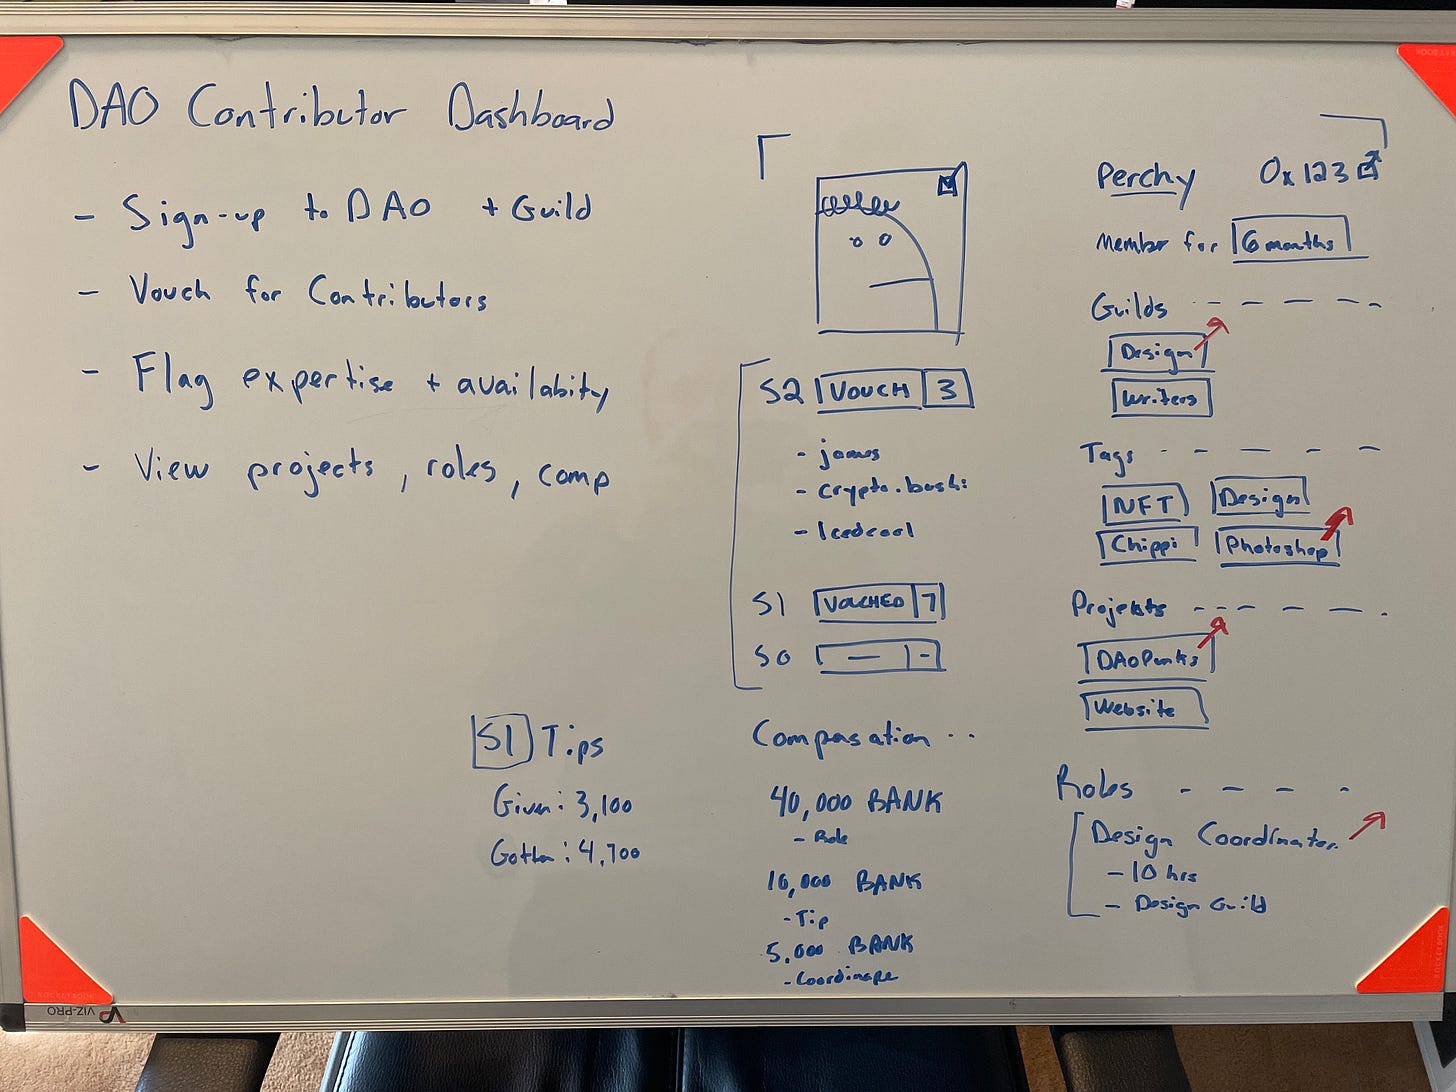 DAO Contributor Dashboard
- Sign-up to DAO + Guild
- Vouch for Contributors
- Flag expertise + availabity
- View projects, roles, comp
S1 Tips
Given: 3,100
Gotten: 4,700
S2 VOUCH 3
- james
- crypto.bushi
- Icedcool
S1 VOUCHED 7
S0 — -
Compensation ..
40,000 BANK
- Role
10,000 BANK
- Tip
5,000 BANK
- Coordinape
Perchy 0x123
Member for 6 months
Guilds
Design
Writers
Tags
NFT Design
Chippi Photoshop
Projects
DAOPunks
Website
Roles
Design Coordinator
- 10 hrs
- Design Guild
VIZ-PRO